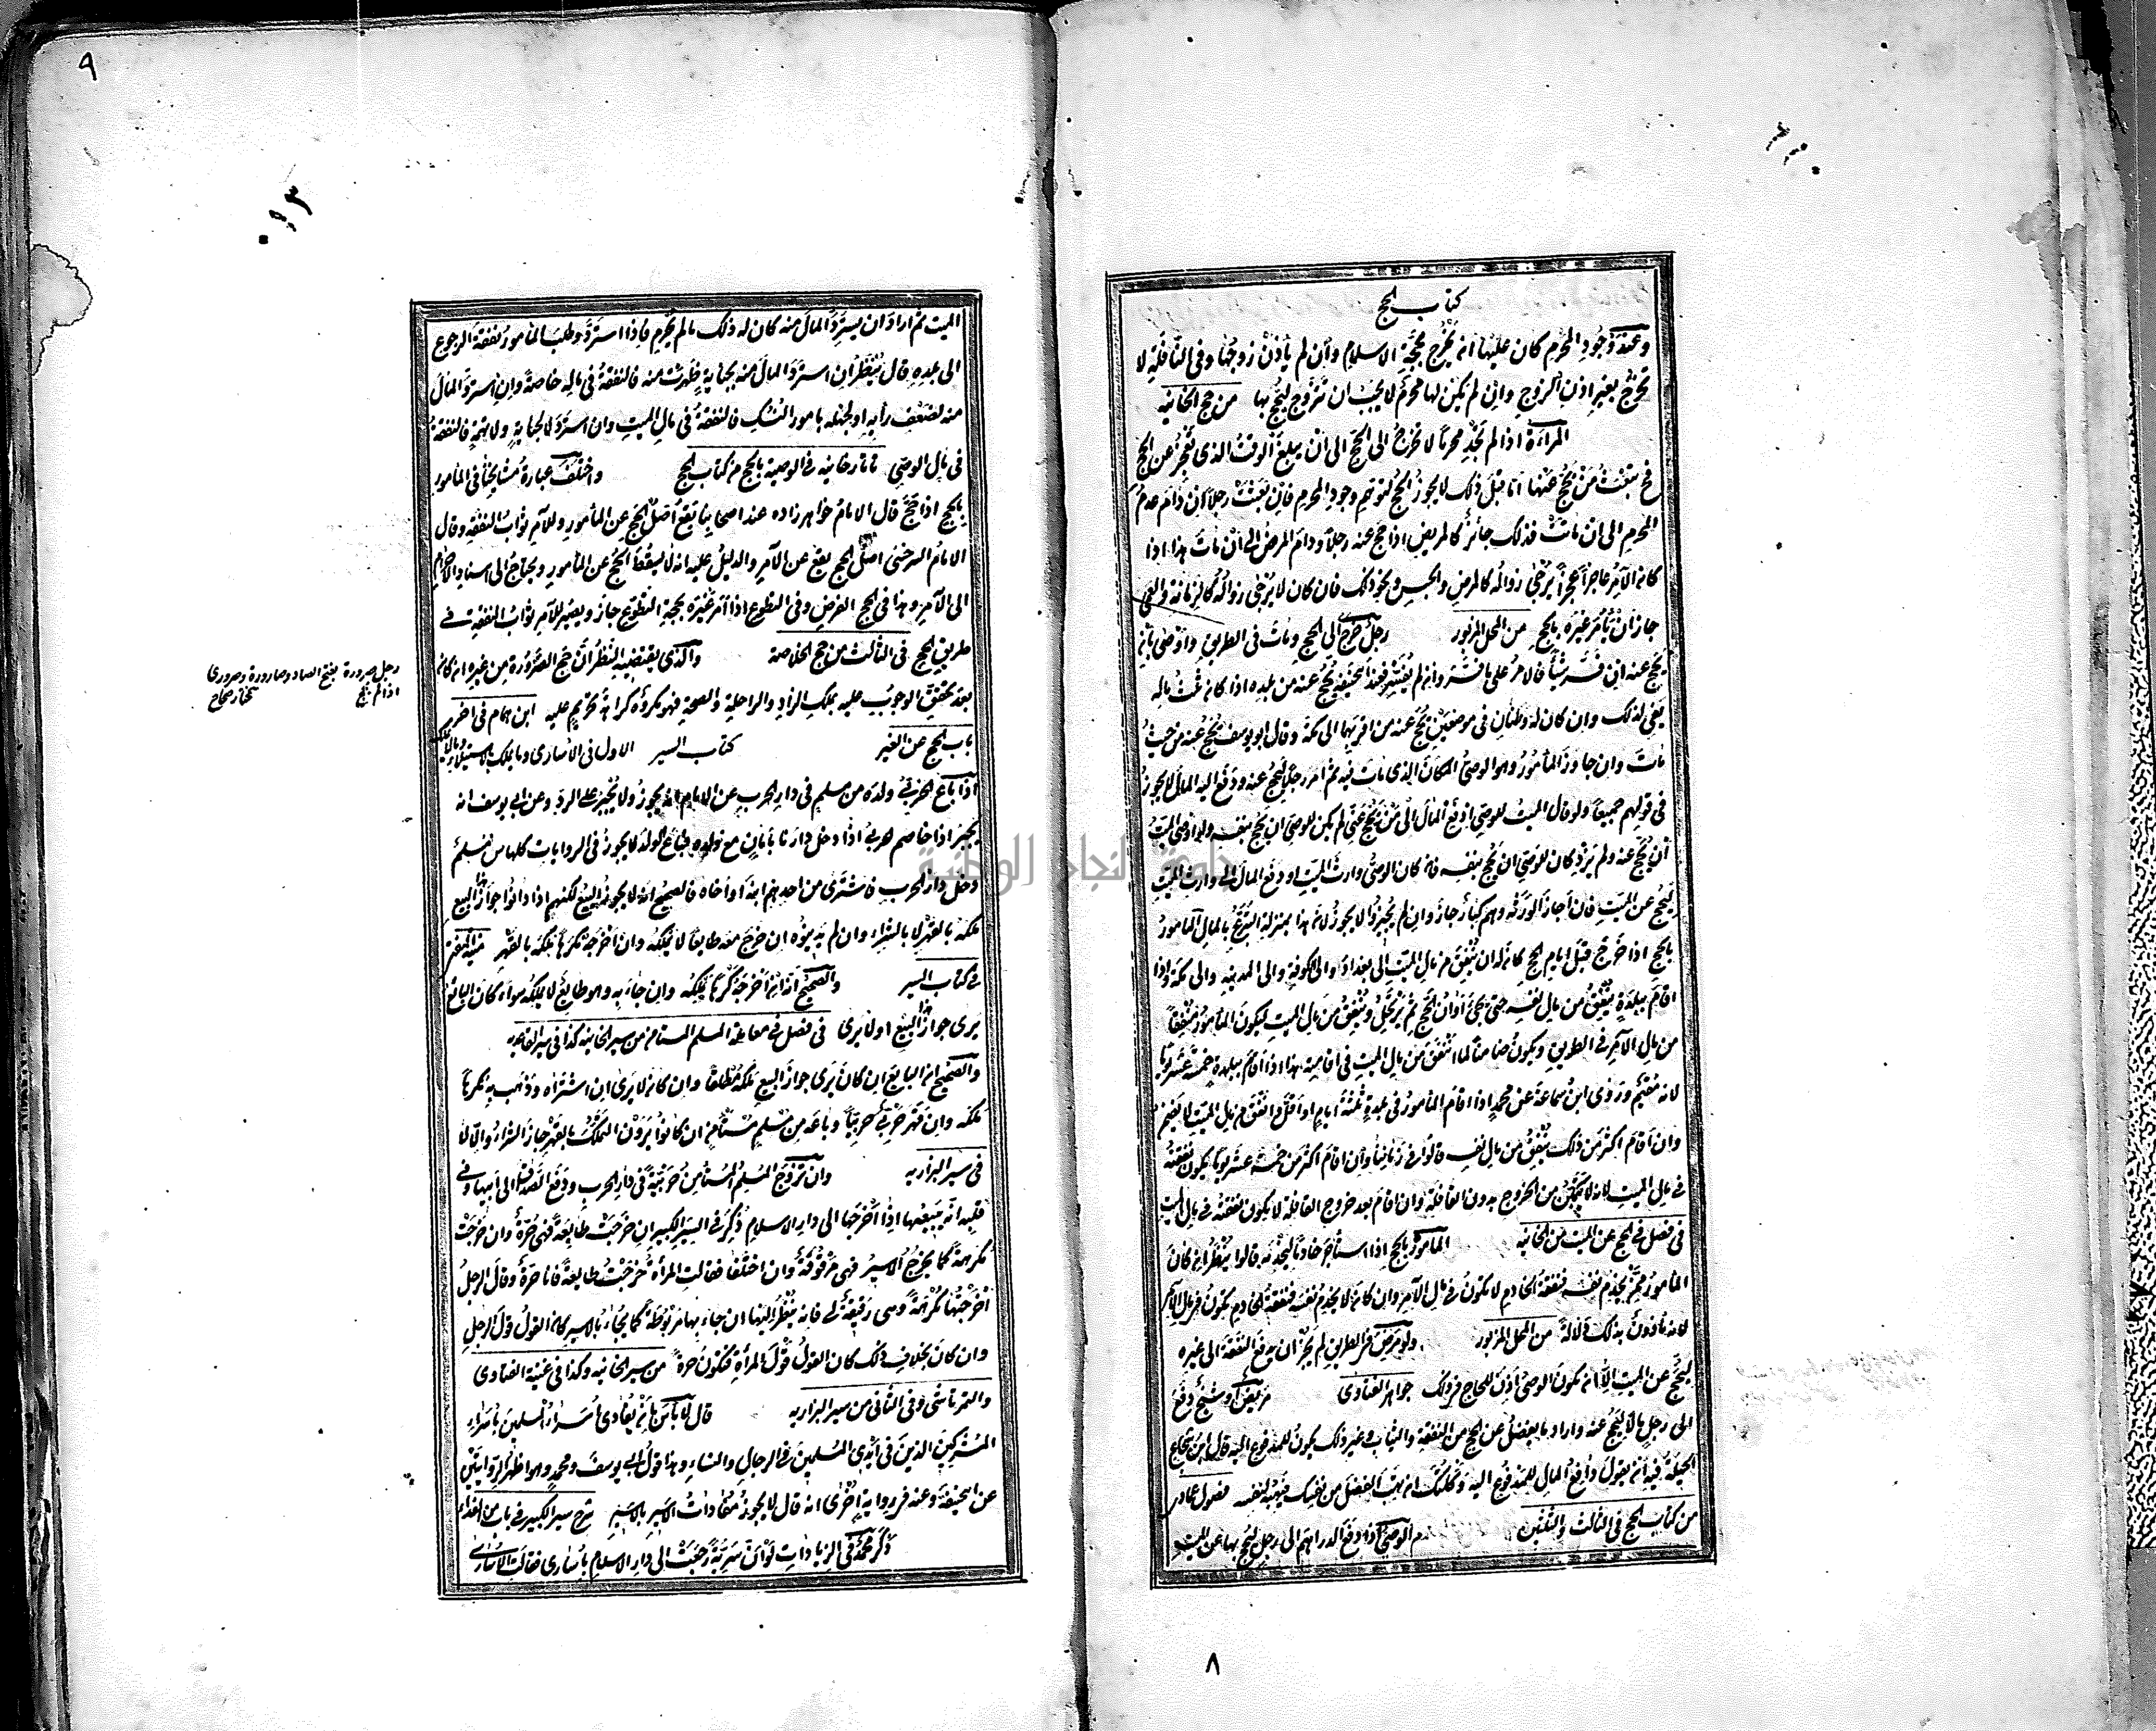 كتاب الحج
وعند وجود المحرم كان عليها ان تخرج بحجة الاسلام وان لم يأذن زوجها وفى النافلة لا
تخرج بغير اذن الزوج وان لم يكن لها محرم لا يجب ان تتزوج ليحج بها من حج الخانيه
المراءة اذا لم تجد محرما لا تخرج الى الحج الى ان يبلغ الوقت الذى تعجز عن الحج
فح تبعث من يحج عنها اما قبل ذلك لا يجوز الحج لتوهم وجود المحرم فان بعثت رجلا ان دام عدم
المحرم الى ان ماتت فذلك جائز كالمريض اذا حج عنه رجلا ودام المرض الى ان مات هذا اذا
كان الآمر عاجزا عجزا يرجى زواله كالمرض والحبس ونحو ذلك فان كان لا يرجى زواله كالزمانة والعمى
جاز ان يأمر غيره بالحج من المحل المزبور رجل خرج الى الحج ومات فى الطريق واوصى بان
يحج عنه ان فسر شيأ فالامر على ما فسر وان لم يفسر فعند ابى حنيفه يحج عنه من بلده اذا كان ثلث ماله
يفى لذلك وان كان له وطنان فى موضعين يحج عنه من اقربهما الى مكة وقال ابو يوسف يحج عنه من حيث
مات وان جاوز المأمور وهو الوصى المكان الذى مات فيه ثم امر رجلا ليحج عنه ودفع اليه المال لا يجوز
فى قولهم جميعا ولو قال الميت للوصى ادفع المال الى من يحج عنى لم يكن للوصى ان يحج بنفسه ولو اوصى الميت
ان يحج عنه ولم يزد كان للوصى ان يحج بنفسه فان كان الوصى وارث الميت او دفع المال الى وارث الميت
ليحج عن الميت فان اجاز الورثه وهم كبار جاز وان لم يجيزوا لا يجوز لان هذا بمنزلة التبرع بالمال المأمور
بالحج اذا خرج قبل ايام الحج كان له ان ينفق من مال الميت الى بغداد والى الكوفة والى المدينه والى مكة واذا
اقام ببلدة ينفق من مال نفسه حتى يجئ اوان الحج ثم يرتحل وينفق من مال الميت ليكون المأمور منفقا
من مال الآمر فى الطريق ويكون ضامنا لما انفق من مال الميت فى اقامته هذا اذا اقام ببلدة خمسة عشر يوما
لانه مقيم وروى ابن سماعة عن محمد اذا اقام المأمور فى بلدة ثلثة ايام او اقل فانفق من مال الميت لا يضمن
وان اقام اكثر من ذلك ينفق من مال نفسه قالوا فى زماننا وان اقام اكثر من خمسة عشر يوما يكون نفقته
فى مال الميت لانه لا يتمكن من الخروج بدون القافلة وان اقام بعد خروج القافلة لا يكون نفقته فى مال الميت
فى فصل فى الحج عن الميت من الخانيه المأمور بالحج اذا استأجر خادما ليخدمه قالوا ينظر ان كان
المأمور ممن يخدم نفسه فنفقة الخادم لا تكون فى مال الآمر وان كان لا يخدم نفسه فنفقة الخادم يكون فى مال الآمر
لانه مأذون بذلك دلالة من المحل المزبور ولو مرض فى الطريق لم يجز ان يدفع النفقة الى غيره
ليحج عن الميت الا ان يكون الوصى اذن للحاج فى ذلك جواهر الفتاوى مريض او شيخ دفع
الى رجل مالا ليحج عنه واراد ما يفضل عن الحج من النفقة والثياب وغير ذلك يكون للمدفوع اليه قال ابن شجاع
الحيلة فيه ان يقول دافع المال للمدفوع اليه وكلتك ان تهب الفضل من نفسك فتهبه لنفسه فصول عمادى
من كتاب الحج فى الثالث والثلثين الوصى اذا دفع الدراهم الى رجل ليحج بها عن الميت
٨
٩
الميت ثم اراد ان يسترد المال منه كان له ذلك ما لم يحرم فاذا استرد وطلب المأمور نفقة الرجوع
الى بلده قال ينظر ان استرد المال منه بجناية ظهرت منه فالنفقة فى ماله خاصة وان استرد المال
منه لضعف رأيه او لجهله بامور النسك فالنفقة فى مال الميت وان استرد لا لجناية ولا تهمة فالنفقة
فى مال الوصى تاتارخانيه فى الوصية بالحج من كتاب الحج واختلف عبارة مشايخنا فى المأمور
بالحج اذا حج قال الامام خواهر زاده عند اصحابنا تقع اصل الحج عن المأمور وللآمر ثواب النفقة وقال
الامام السرخسى اصل الحج يقع عن الآمر والدليل عليه انه لا يسقط الحج عن المأمور ويحتاج الى اسناد الاحرام
الى الآمر وهذا فى الحج الفرض وفى التطوع اذا امر غيره بحجة التطوع جاز ويصير للآمر ثواب النفقة فى
طريق الحج فى الثالث من حج الخلاصة والذى يقتضيه النظر ان حج الصرورة من غيره ان كان
بعد تحقق الوجوب عليه بملك الزاد والراحلة والصحة فهو مكروه كراهة تحريم عليه ابن همام فى اخر
رجل صرورة بفتح الصاد وصارورة وصرورى
اذا لم يحج مختار صحاح
باب الحج عن الغير كتاب السير الاول فى الاسارى وما يملك بالاستيلاء وما لا يملك
اذا باع الحربى ولده من مسلم فى دار الحرب عن الامام انه يجوز ولا يجبر على الرد وعن ابى يوسف انه
يجبر اذا خاصم الحربى اذا دخل دارنا بامان مع ولده فباع الولد لا يجوز فى الروايات كلها مسلم
دخل دار الحرب فاشترى من احدهم ابنه او اخاه فالصحيح انه لا يجوز البيع لكنهم اذا دانوا جواز البيع
ملكه بالقهر لا بالشراء وان لم يدينوه ان خرج معه طايعا لا يملكه وان اخرجه مكرها ملكه بالقهر منية المفتى
فى كتاب السير والصحيح انه ان اخرجه كرها يملكه وان جاء به وهو طايع لا يملكه سواء كان البائع
يرى جواز البيع او لا يرى فى فصل فى معاملة المسلم المستامن من سير الخانيه كذا فى سير القاعديه
والصحيح ان البايع ان كان يرى جواز البيع ملكه مطلقا وان كان لا يرى ان اشتراه وذهب به مكرها
ملكه وان قهر حربى حربيا وباعه من مسلم مستأمن ان كانوا يرون التملك بالقهر جاز الشراء والا لا
فى سير البزازيه وان تزوج المسلم المستأمن حربية فى دار الحرب ودفع الصداق الى ابيها وفى
قلبه انه يبيعها اذا اخرجها الى دار الاسلام ذكر فى السير الكبير ان خرجت طايعة فهى حرة وان خرجت
مكرهة كما يخرج الاسير فهى مرقوقة وان اختلفا فقالت المرأة خرجت طايعة فانا حرة وقال الرجل
اخرجتها مكرهة وهى رقيقة لى فانه ينظر اليها ان جاء بها مربوطة كما يجاء بالاسير كان القول قول الرجل
وان كان بخلاف ذلك كان القول قول المرأة فتكون حرة من سير الخانيه وكذا فى غنية الفتاوى
والتمرتاشى وفى الثانى من سير البزازيه قال لا بأس بان يفادى اسراء المسلمين باسراء
المشركين الذين فى ايدى المسلمين فى الرجال والنساء وهذا قول ابى يوسف ومحمد وهو اظهر الروايتين
عن ابى حنيفة وعنه فى رواية اخرى انه قال لا يجوز مفادات الاسير بالاسير شرح سير الكبير فى باب من الفداء
ذكر محمد فى الزيادات لو ان سرية رجعت الى دار الاسلام باسارى فقالت الاسارى
جامعة النجاح الوطنية